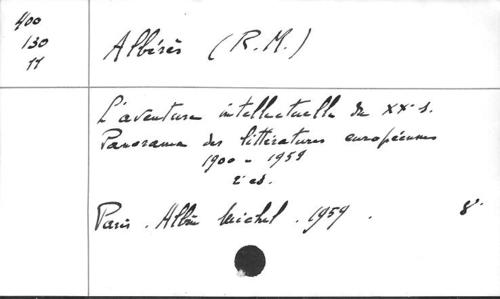 400
130
11
Albérès (R.M.)
L'aventure intellectuelle du XXe s.
Panorama des littératures européennes
1900 - 1959
2e ed.
Paris. Albin Michel. 1959. 8°